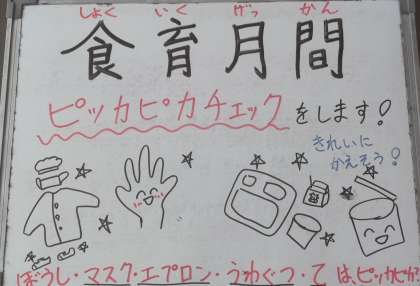 しょく いく げっ かん
食育月間
ピッカピカチェックをします!
きれいに
かえそう!
ぼうし・マスク・エプロン・うわぐつ・ては、ピッカピカ